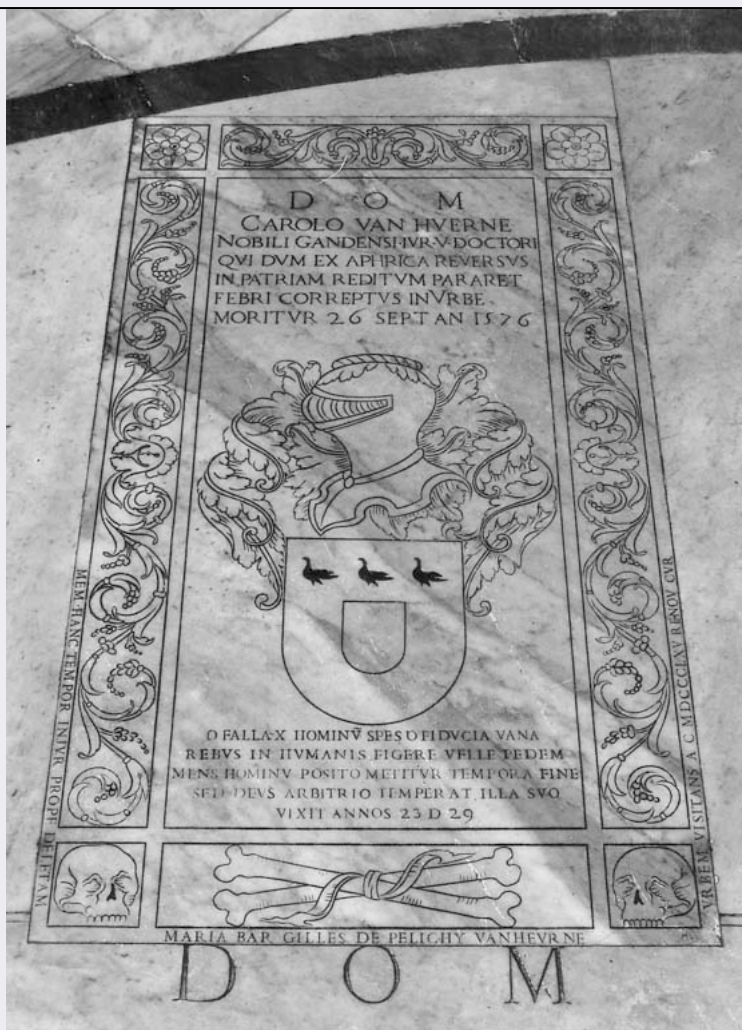 D O M
CAROLO VAN HVERNE
NOBILI GANDENSI·IVR·V·DOCTORI
QVI DVM EX APHRICA REVERSVS
IN PATRIAM REDITVM PARARET
FEBRI CORREPTVS IN VRBE
MORITVR 26 SEPT AN 1576
O FALLAX HOMINV̄ SPES O FIDVCIA VANA
REBVS IN HVMANIS FIGERE VELLE PEDEM
MENS HOMINV POSITO METITVR TEMPORA FINE
SED DEVS ARBITRIO TEMPERAT ILLA SVO
VIXIT ANNOS 23 D 29
MEM HANC TEMPOR INIVR PROPE DELETAM
MARIA BAR GILLES DE PELICHY VANHEVRNE
VRBEM VISITANS A C MDCCCLXV RENOV CVR
D O M